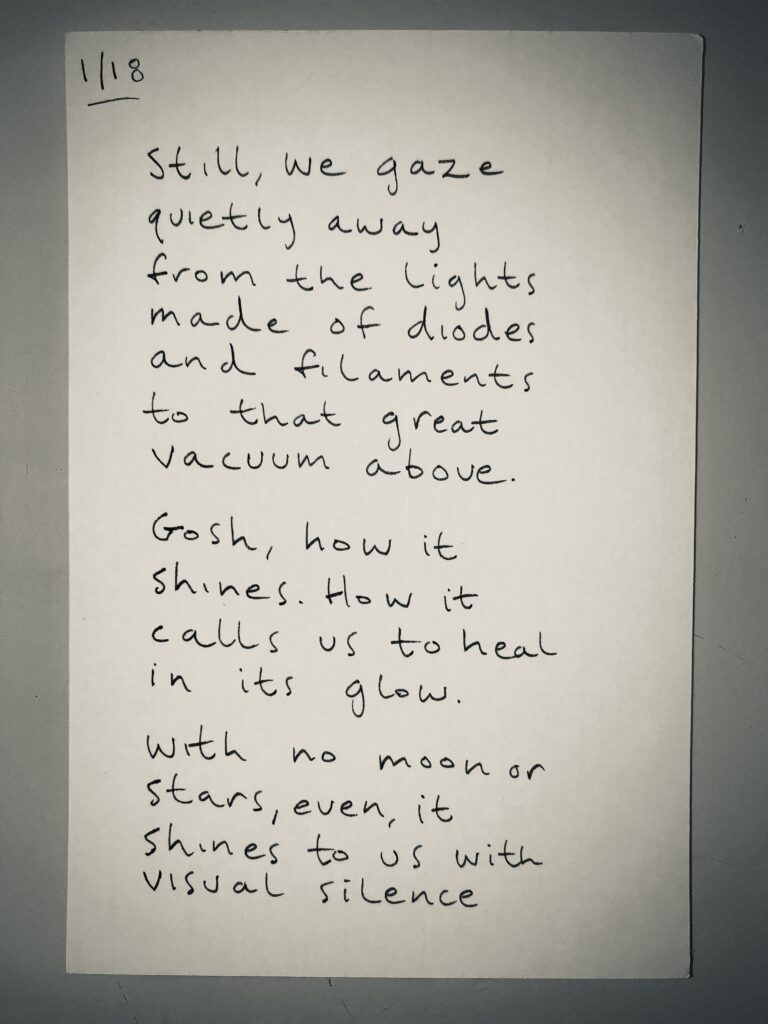 1/18
Still, we gaze
quietly away
from the lights
made of diodes
and filaments
to that great
vacuum above.
Gosh, how it
shines. How it
calls us to heal
in its glow.
With no moon or
stars, even, it
shines to us with
visual silence